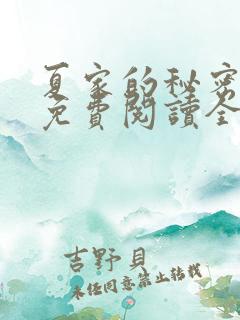 夏家的秘密
免費閱讀全
吉野貝
未任同意禁止转载